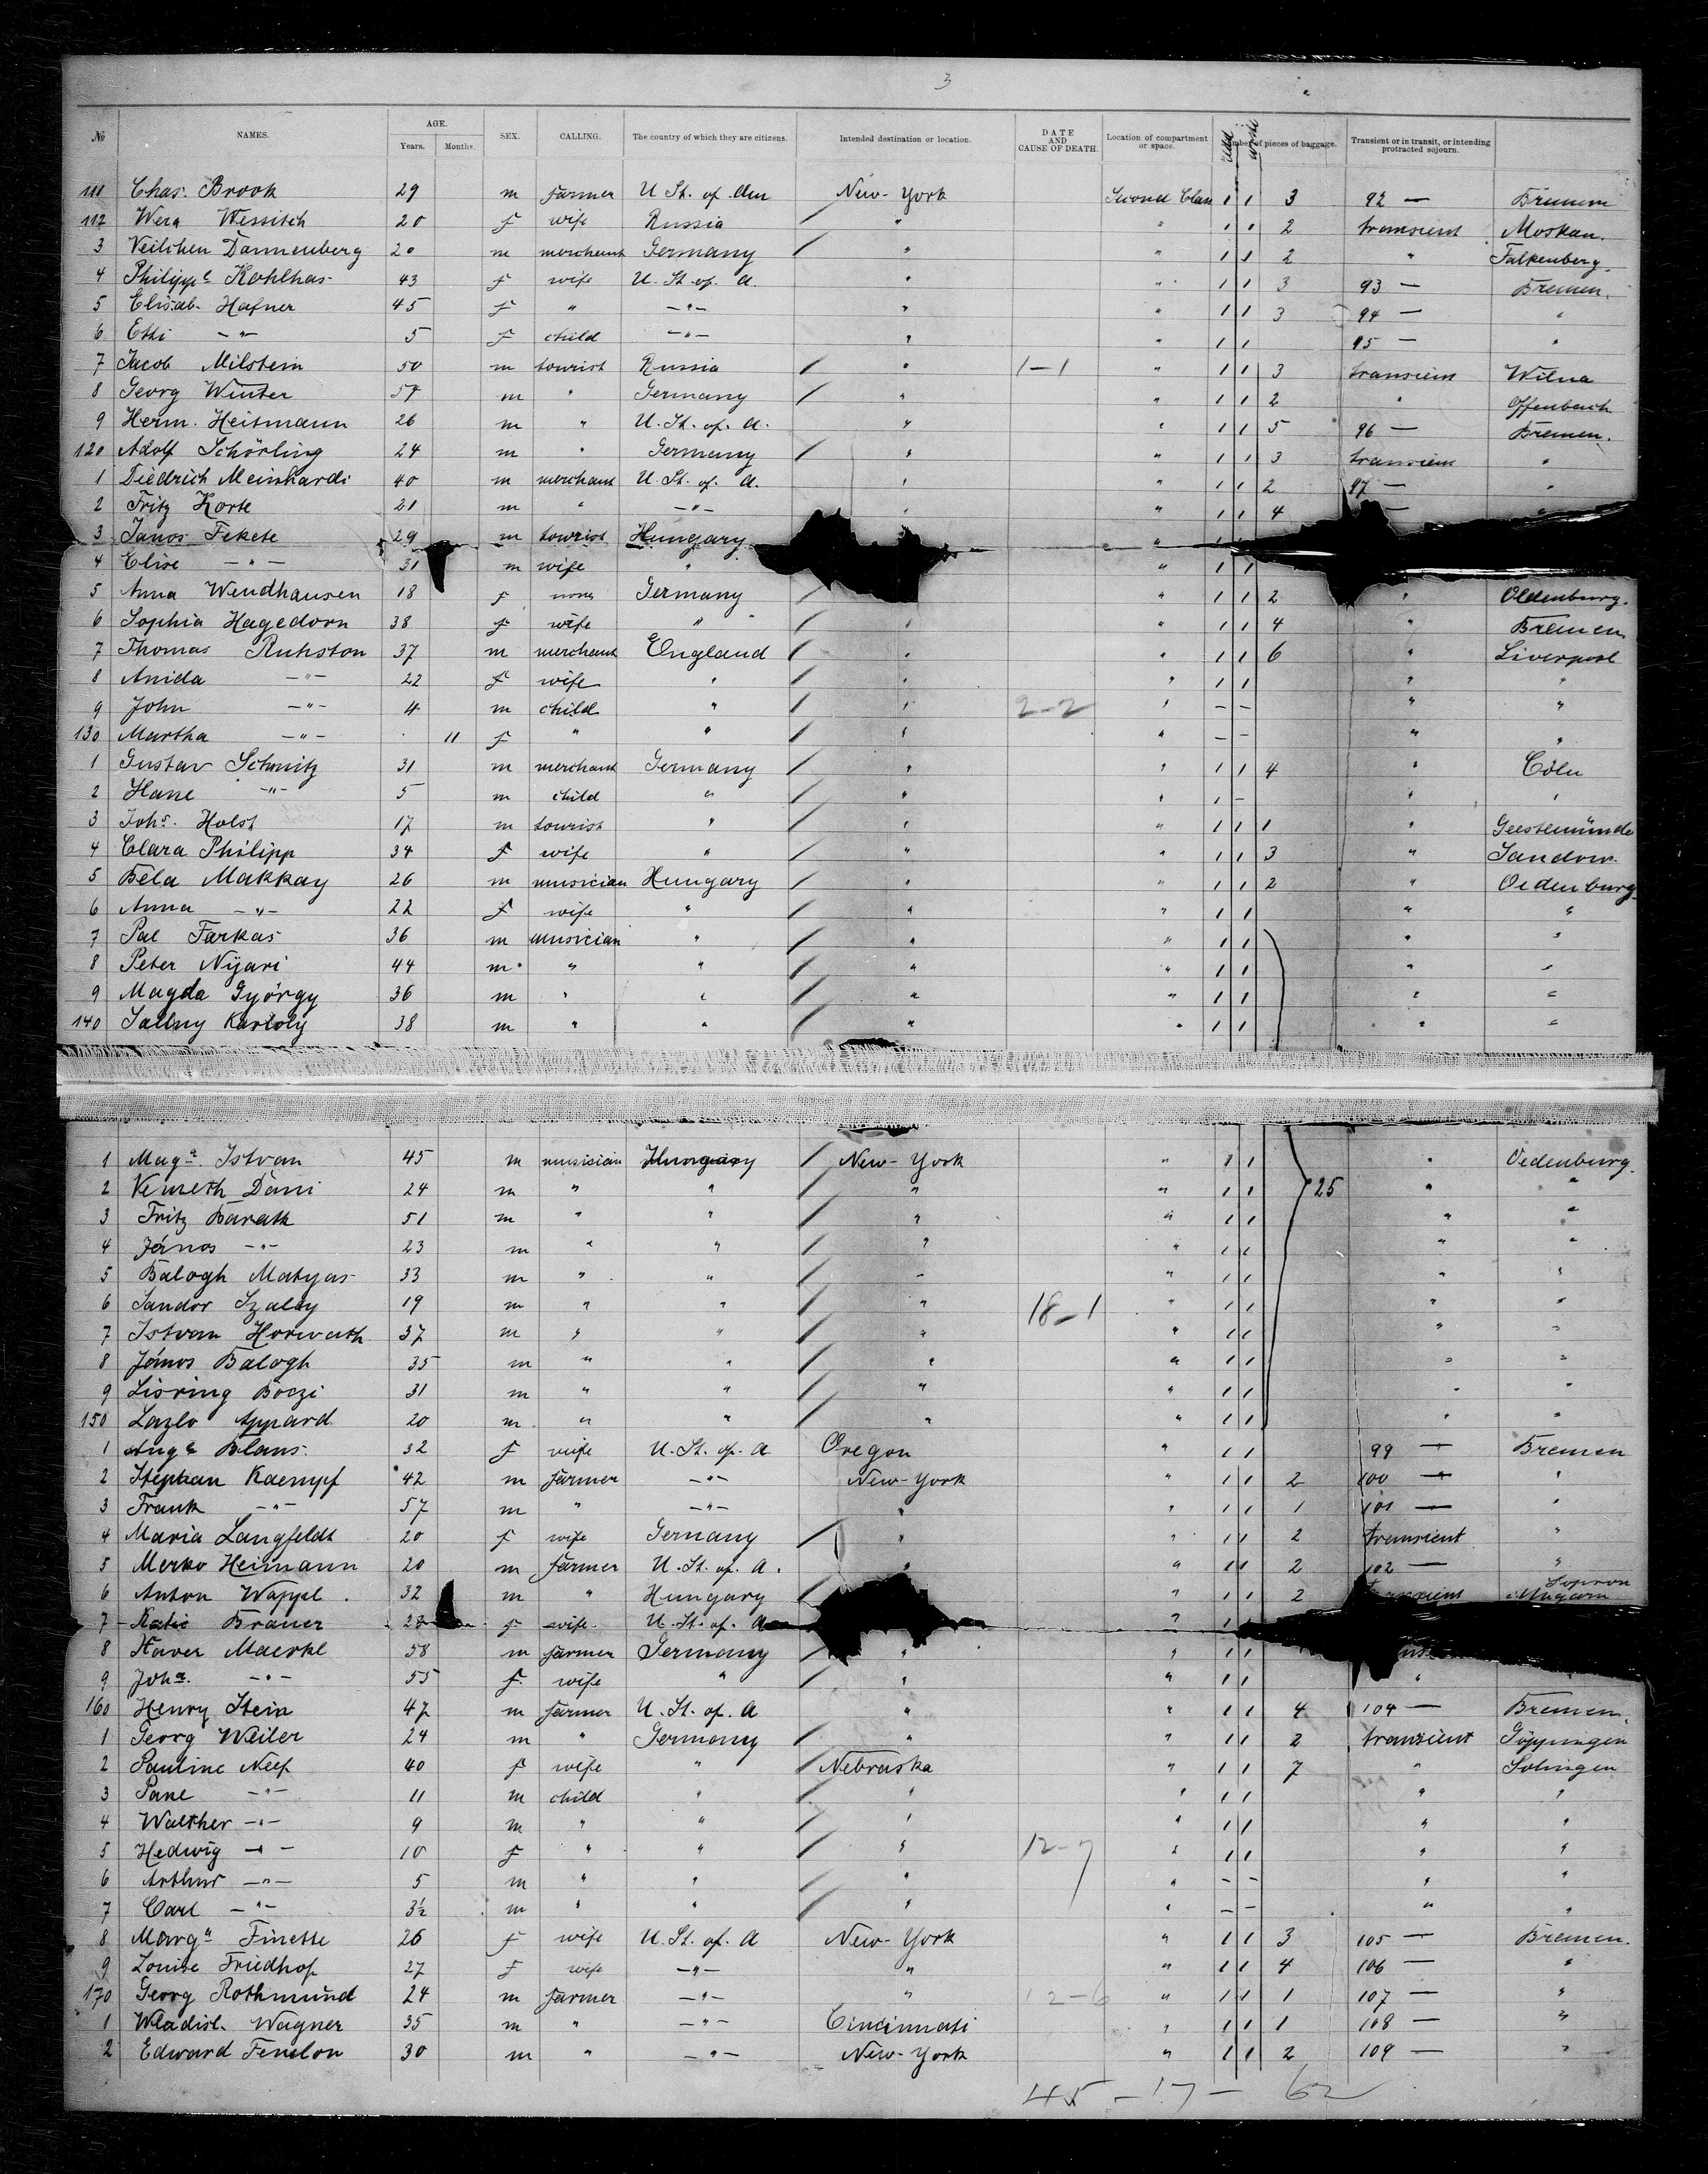 3
№ NAMES. AGE. Years. Months. SEX. CALLING. The country of which they are citizens. Intended destination or location. DATE AND CAUSE OF DEATH. Location of compartment or space. Number of pieces of baggage. Transient or in transit, or intending protracted sojourn.
111 Chas. Brook 29 m farmer U St. of Am New-York Second Class 1 1 3 92 — Bremen
112 Wera Wessitch 20 f wife Russia " " 1 1 2 transient Moskau.
3 Veilchen Dannenberg 20 m merchant Germany " " 1 1 2 " Falkenberg.
4 Philippe Kohlhas 43 f wife U. St. of. A. " " 1 1 3 93 — Bremen.
5 Elisab. Hafner 45 f " —"— " " 1 1 3 94 — "
6 Etti —"— 5 f child —"— " " 1 1 95 — "
7 Jacob Milstein 50 m tourist Russia / " 1-1 " 1 1 3 transient Wilna
8 Georg Winter 54 m " Germany / " " 1 1 2 " Offenbach
9 Herm. Heitmann 26 m " U. St. of. A. " " 1 1 5 96 — Bremen.
120 Adolf Schörling 24 m " Germany / " " 1 1 3 transient "
1 Diedrich Meinhardi 40 m merchant U. St. of. A. " " 1 1 2 97 — "
2 Fritz Korte 21 m " —"— " " 1 1 4 — "
3 Janos Fekete 29 m tourist Hungary " 1 1
4 Elise —"— 31 m wife " " 1 1
5 Anna Wendhausen 18 f none Germany / " 1 1 2 " Oldenburg.
6 Sophia Hagedorn 38 f wife " / " " 1 1 4 " Bremen
7 Thomas Ruhston 37 m merchant England / " " 1 1 6 " Liverpool
8 Anida —"— 22 f wife " / " " 1 1 " "
9 John —"— 4 m child " / " 2-2 " — — " "
130 Martha —"— 11 f " " / " " — — " "
1 Gustav Schmitz 31 m merchant Germany / " " 1 1 4 " Cöln
2 Hane —"— 5 m child " / " " 1 — " "
3 Johs. Holst 17 m tourist " / " " 1 1 1 " Geestemünde
4 Clara Philipp 34 f wife " / " " 1 1 3 " Sandow.
5 Béla Makkay 26 m musician Hungary / " " 1 1 2 " Oedenburg
6 Anna —"— 22 f wife " / " " 1 1 " "
7 Pal Farkas 36 m musician " / " " 1 1 " "
8 Peter Nyari 44 m " " / " " 1 1 " "
9 Magda György 36 m " " / " " 1 1 " "
140 Karloly 38 m " " / " " 1 1 " "
1 Maga. Istvan 45 m musician Hungary / New-York " 1 1 " Oedenburg.
2 Nemeth Dani 24 m " " / " " 1 1 25 " "
3 Fritz Barath 51 m " " / " " 1 1 " "
4 János —"— 23 m " " / " " 1 1 " "
5 Balogh Matyas 33 m " " / " " 1 1 " "
6 Sandor Szalay 19 m " " / " 18-1 " 1 1 " "
7 Istvan Horwath 37 m " " / " " 1 1 " "
8 János Balogh 35 m " " / " " 1 1 " "
9 Boczi 31 m " " / " " 1 1 " "
150 Lazlo Appard 20 m " " / " " 1 1 " "
1 Auge Blans 32 f wife U. St. of. A Oregon " 1 1 99 — Bremen
2 Stephan Kaempf 42 m farmer —"— New-York " 1 1 2 100 — "
3 Frank —"— 57 m " —"— " " 1 1 1 101 — "
4 Maria Langfeldt 20 f wife Germany / " " 1 1 2 transient "
5 Merko Heimann 20 m farmer U. St. of. A. " " 1 1 2 102 — "
6 Anton Wappel 32 m " Hungary / " 1 1 2 transient Sopron Ungarn
7 Katie Brauer 28 f wife U. St. of. A " 1
8 Xaver Maerkl 58 m farmer Germany / " " 1 1
9 Joha. —"— 55 f wife " / " " 1 1 "
160 Henry Stein 47 m farmer U. St. of. A " " 1 1 4 104 — Bremen.
1 Georg Weiler 24 m " Germany / " " 1 1 2 transient Göppingen
2 Pauline Neef 40 f wife " / Nebraska " 1 1 7 " Solingen
3 Pane —"— 11 m child " / " " 1 1 " "
4 Walther —"— 9 m " " / " " 1 1 " "
5 Hedwig —"— 10 f " " / " 12-7 " 1 1 " "
6 Arthur —"— 5 m " " / " " — — " "
7 Carl —"— 3½ m " " / " " — — " "
8 Marga Finette 26 f wife U. St. of. A New-York " 1 1 3 105 — Bremen.
9 Louise Friedhof 27 f wife —"— " " 1 1 4 106 — "
170 Georg Rothmund 24 m farmer —"— " 12-6 " 1 1 1 107 — "
1 Wladisl. Wagner 35 m " —"— Cincinnati " 1 1 1 108 — "
2 Edward Fenelon 30 m " —"— New-York " 1 1 2 109 — "
45 - 17 - 62